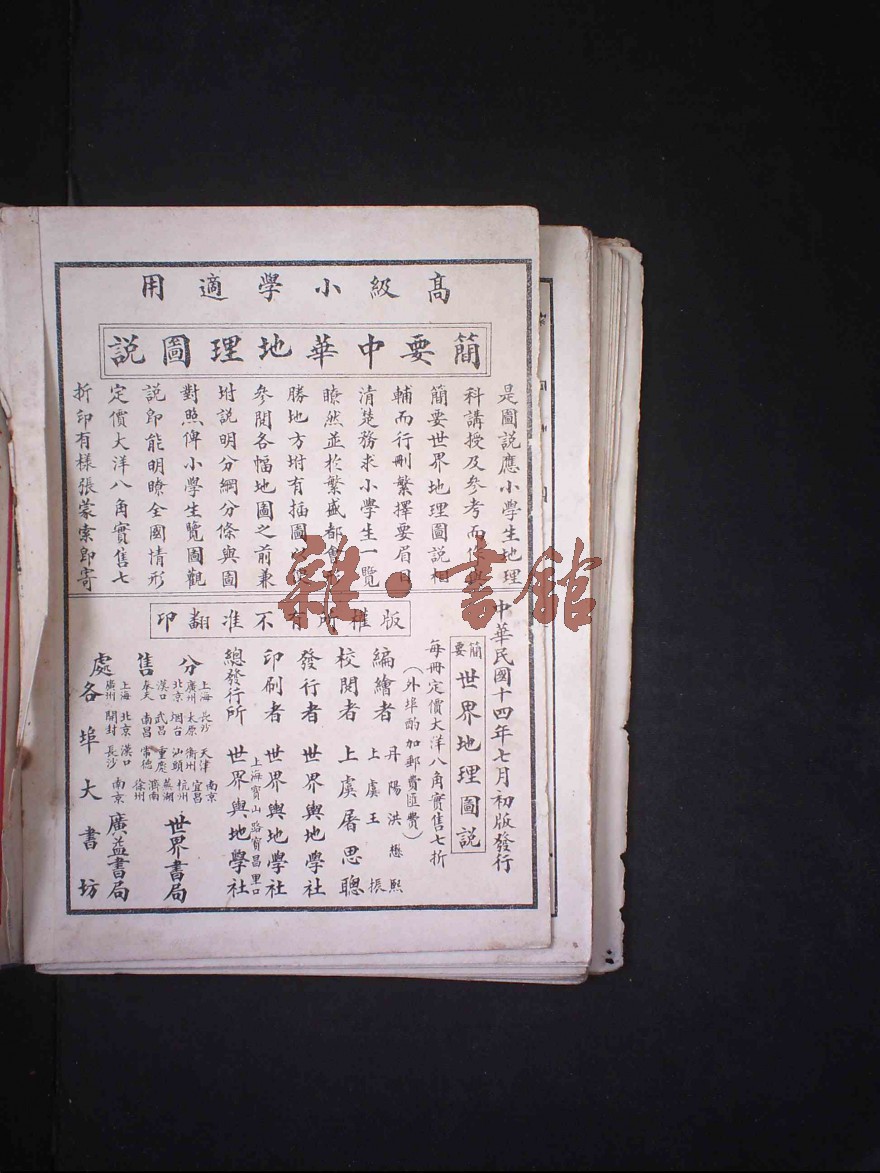 高級小學適用
簡要中華地理圖説
是圖説應小學生地理
科講授及參考而作與
簡要世界地理圖説相
輔而行刪繁擇要眉目
清楚務求小學生一覽
瞭然並於繁盛都會形
勝地方坿有插圖以
參閱各幅地圖之前兼
坿説明分綱分條與圖
對照俾小學生覽圖觀
説即能明瞭全國情形
定價大洋八角實售七
折印有樣張蒙索即寄
版權所有不准翻印
中華民國十四年七月初版發行
簡要世界地理圖説
每冊定價大洋八角實售七折
（外埠酌加郵費匯費）
編繪者 丹陽洪懋熙
上虞王振
校閱者 上虞屠思聰
發行者 世界輿地學社
印刷者 世界輿地學社
上海寶山路寶昌里口
總發行所 世界輿地學社
分售處
上海 長沙 天津 南京
廣州 太原 衢州 宜昌
北京 烟台 汕頭 杭州
漢口 武昌 重慶 蕪湖
奉天 南昌 常德 濟南
徐州
世界書局
上海 北京 漢口 南京
廣州 開封 長沙
廣益書局
各埠大書坊
雜·書館